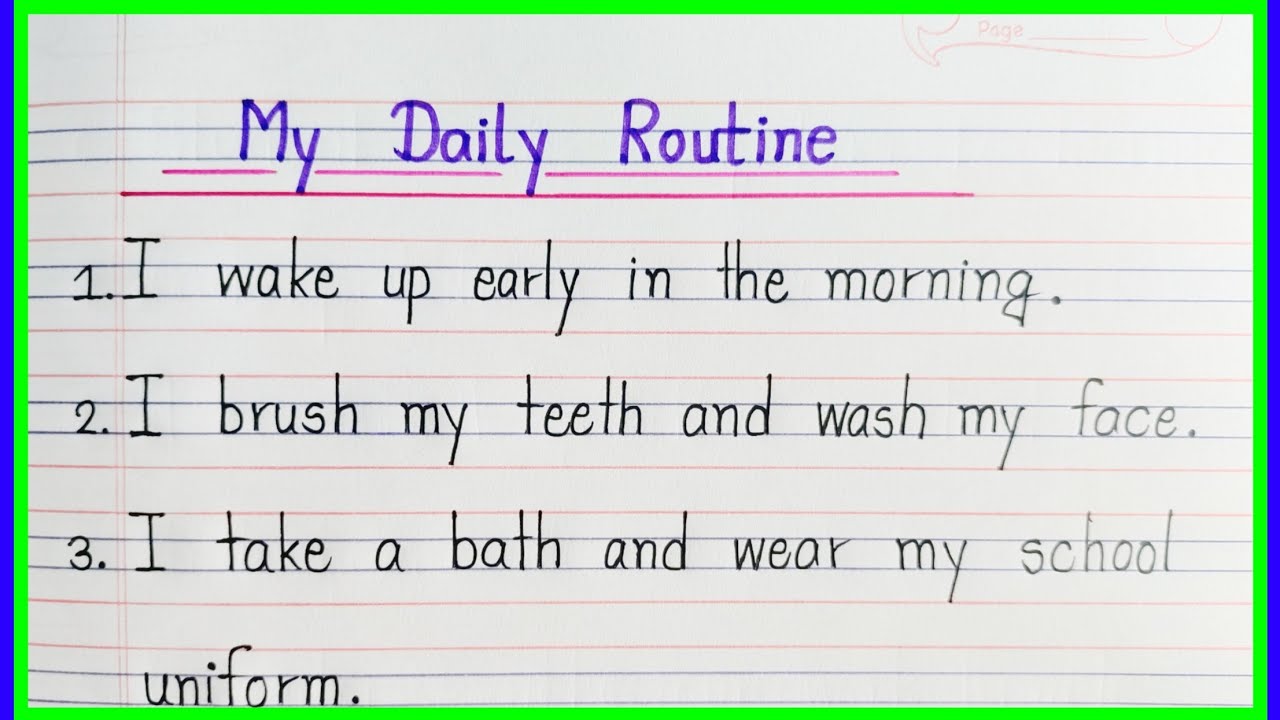 Page
My Daily Routine
1. I wake up early in the morning.
2. I brush my teeth and wash my face.
3. I take a bath and wear my school
uniform.